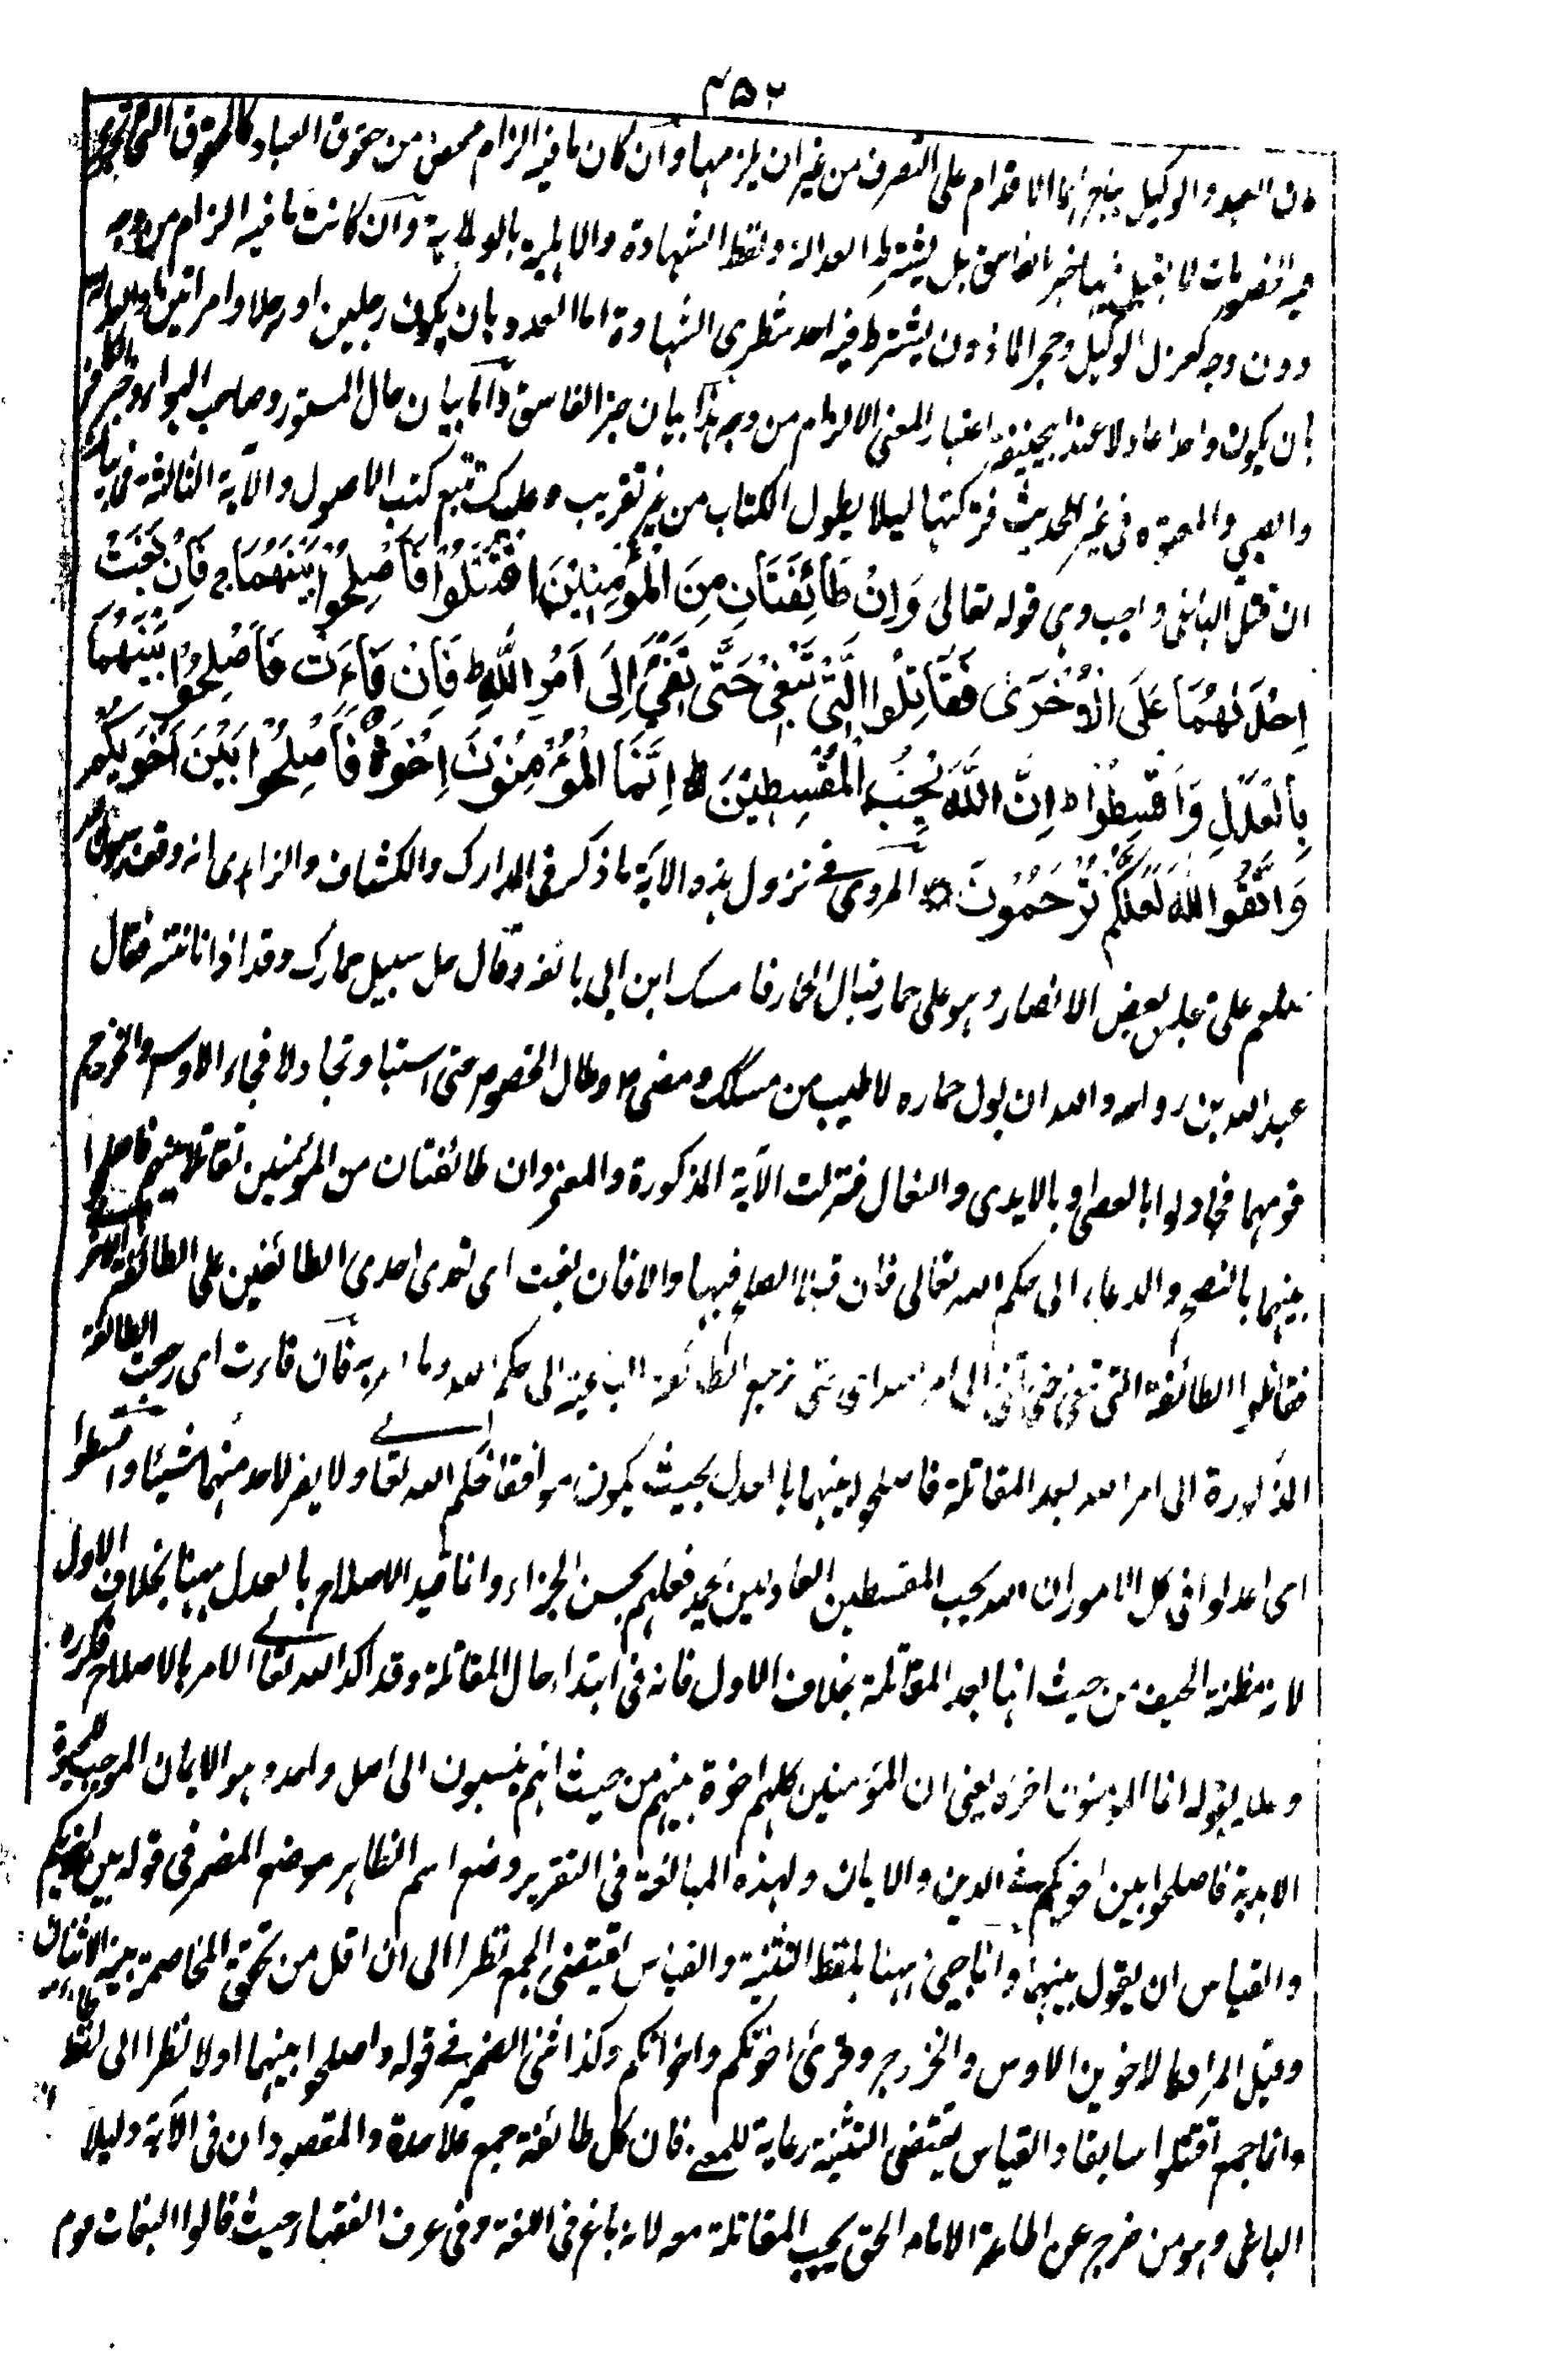 ۴۵۲
فان العبد والوكيل يباح لهما الاقدام على التصرف من غير ان يلزمهما وان كان ما فيه الزام محض من حقوق العباد كالحقوق التى تجرى
فيه الخصومات لا يقبل فيها خبر الفاسق بل يشترط العدالة ولفظ الشهادة والاهلية بالولاية وان كانت ما فيه الزام من وجه
دون وجه كعزل الوكيل وحجر الماذون يشترط فيه احد شطرى الشهادة اما العدد بان يكون رجلين او رجلا وامراتين
بان يكون واحدا عادلا عند ابيحنيفة اعتبار المعنى الالزام من وجه هذا بيان خبر الفاسق واما بيان حال المستور وصاحب الهواء وخبر الكافر
والصبي والمعتوه فى غير الحديث فتركتها ليلا يطول الكتاب من غير تقريب وعليك تتبع كتب الاصول والآية الثالثة فى بيان
ان قتل الباغى واجب وهى قوله تعالى وَاِنْ طَائِفَتَانِ مِنَ الْمُؤْمِنِيْنَ اقْتَتَلُوْا فَاَصْلِحُوْا بَيْنَهُمَا ج فَاِنْ بَغَتْ
اِحْدٰىهُمَا عَلَى الْاُخْرٰى فَقَاتِلُوا الَّتِيْ تَبْغِيْ حَتّٰى تَفِيْٓءَ اِلٰٓى اَمْرِ اللّٰهِ ط فَاِنْ فَآءَتْ فَاَصْلِحُوْا بَيْنَهُمَا
بِالْعَدْلِ وَاَقْسِطُوْا ط اِنَّ اللّٰهَ يُحِبُّ الْمُقْسِطِيْنَ ۝ اِنَّمَا الْمُؤْمِنُوْنَ اِخْوَةٌ فَاَصْلِحُوْا بَيْنَ اَخَوَيْكُمْ
وَاتَّقُوا اللّٰهَ لَعَلَّكُمْ تُرْحَمُوْنَ ۝ المروى فى نزول هذه الآية ما ذكر فى المدارك والكشاف والزاهدى انه وقف رسول الله
صلعم على مجلس بعض الانصار وهو على حمار فبال الحمار فامسك ابن ابى بانفه وقال خل سبيل حمارك وقد اذانا نتنه فقال
عبد الله بن رواحه والله ان بول حماره لاطيب من مسكك ومضى م وطال الخصوم حتى استبا وتجادلا فجاء الاوس والخزرج
قومهما فتجادلوا بالعصى وبالايدى والنعال فنزلت الآية المذكورة والمعنى وان طائفتان من المؤمنين تقاتلا بينهم فاصلحوا
بينهما بالنصح والدعاء الى حكم الله تعالى فان قبلا الصلح فبها والا فان بغت اى تعدى احدى الطائفتين على الطائفة الاخرى
فقاتلوا الطائفة التى تبغى حتى تفئ الى امر الله اى حتى ترجع الطائفة الباغية الى حكم الله وما امر به فان فاءت اى رجعت الطائفة
المذكورة الى امر الله بعد المقاتلة فاصلحوا بينهما بالعدل بحيث يكون موافقا لحكم الله تعالى ولا يضر لاحد منهما شيئا واقسطوا
اى اعدلوا فى كل الامور ان الله يحب المقسطين العادلين يحمد فعلهم بحسن الجزاء وانما قيد الاصلاح بالعدل ههنا بخلاف الاول
لانه مظنة الحيف من حيث انها بعد المقاتلة بخلاف الاول فانه فى ابتداء حال المقاتلة وقد اكد الله تعالى الامر بالاصلاح فكرره
وعلله بقوله انما المؤمنون اخوة يعنى ان المؤمنين كلهم اخوة بينهم من حيث انهم ينسبون الى اصل واحد وهو الايمان الموجب للحيوة
الابدية فاصلحوا بين اخويكم فى الدين والايمان ولهذه المبالغة فى التقرير وضع اسم الظاهر موضع المضمر فى قوله بين اخويكم
والقياس ان يقول بينهما وانما جئ ههنا بلفظ التثنية والقياس يقتضى الجمع نظرا الى ان اقل من تحقق المخاصمة بينه الاثنان
وقيل المراد بالاخوين الاوس والخزرج وقرئ اخوتكم واخوانكم وكذا ثنى الضمير فى قوله واصلحوا بينهما اولا نظرا الى لفظ
وانما جمع اقتتلوا سابقا والقياس يقتضى التثنية رعاية للمعنى فان كل طائفة جمع علاحدة والمقصود ان فى الآية دليلا
الباغى وهو من خرج عن اطاعة الامام الحق يجب المقاتلة معه لانه باغ فى اللغة وفى عرف الفقهاء حيث قالوا البغات قوم